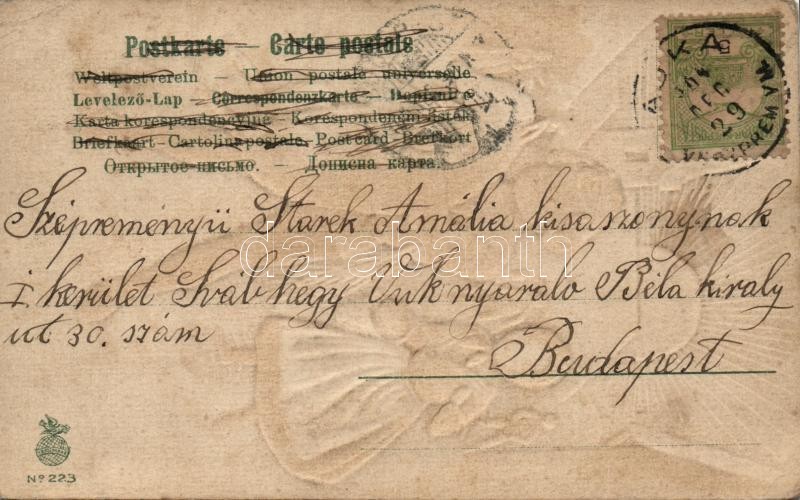 Postkarte — Carte postale
Weltpostverein — Union postale universelle
Levelező-Lap — Correspondenzkarte — Dopisnice
Karta korespondencyjna — Korespondenční lístek
Briefkaart - Cartolina postale - Post card - Brefkort
Открытое письмо. — Дописна карта
Szépreményü Starek Amália kisaszonynak
I kerület Svábhegy Vuk nyaralo Béla király
ut 30. szám
Budapest
ADKA
904
DEC
29
VESZPRÉM VM
darabanth
No 223